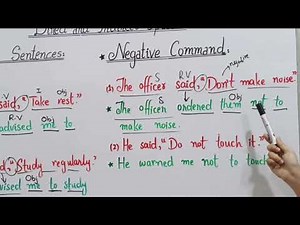 Direct and Indirect Sp
Sentences:
* Negative Command:
negative
S R.V
(1) The officer said, "Don't make noise"
V I
said, "Take rest."
S Obj
* The officer ordened them not to
make noise.
R.V Obj
advised me to
(2) He said, "Do not touch it."
Obj
said, "Study regularly."
* He warned me not to touch
Obj
vised me to study